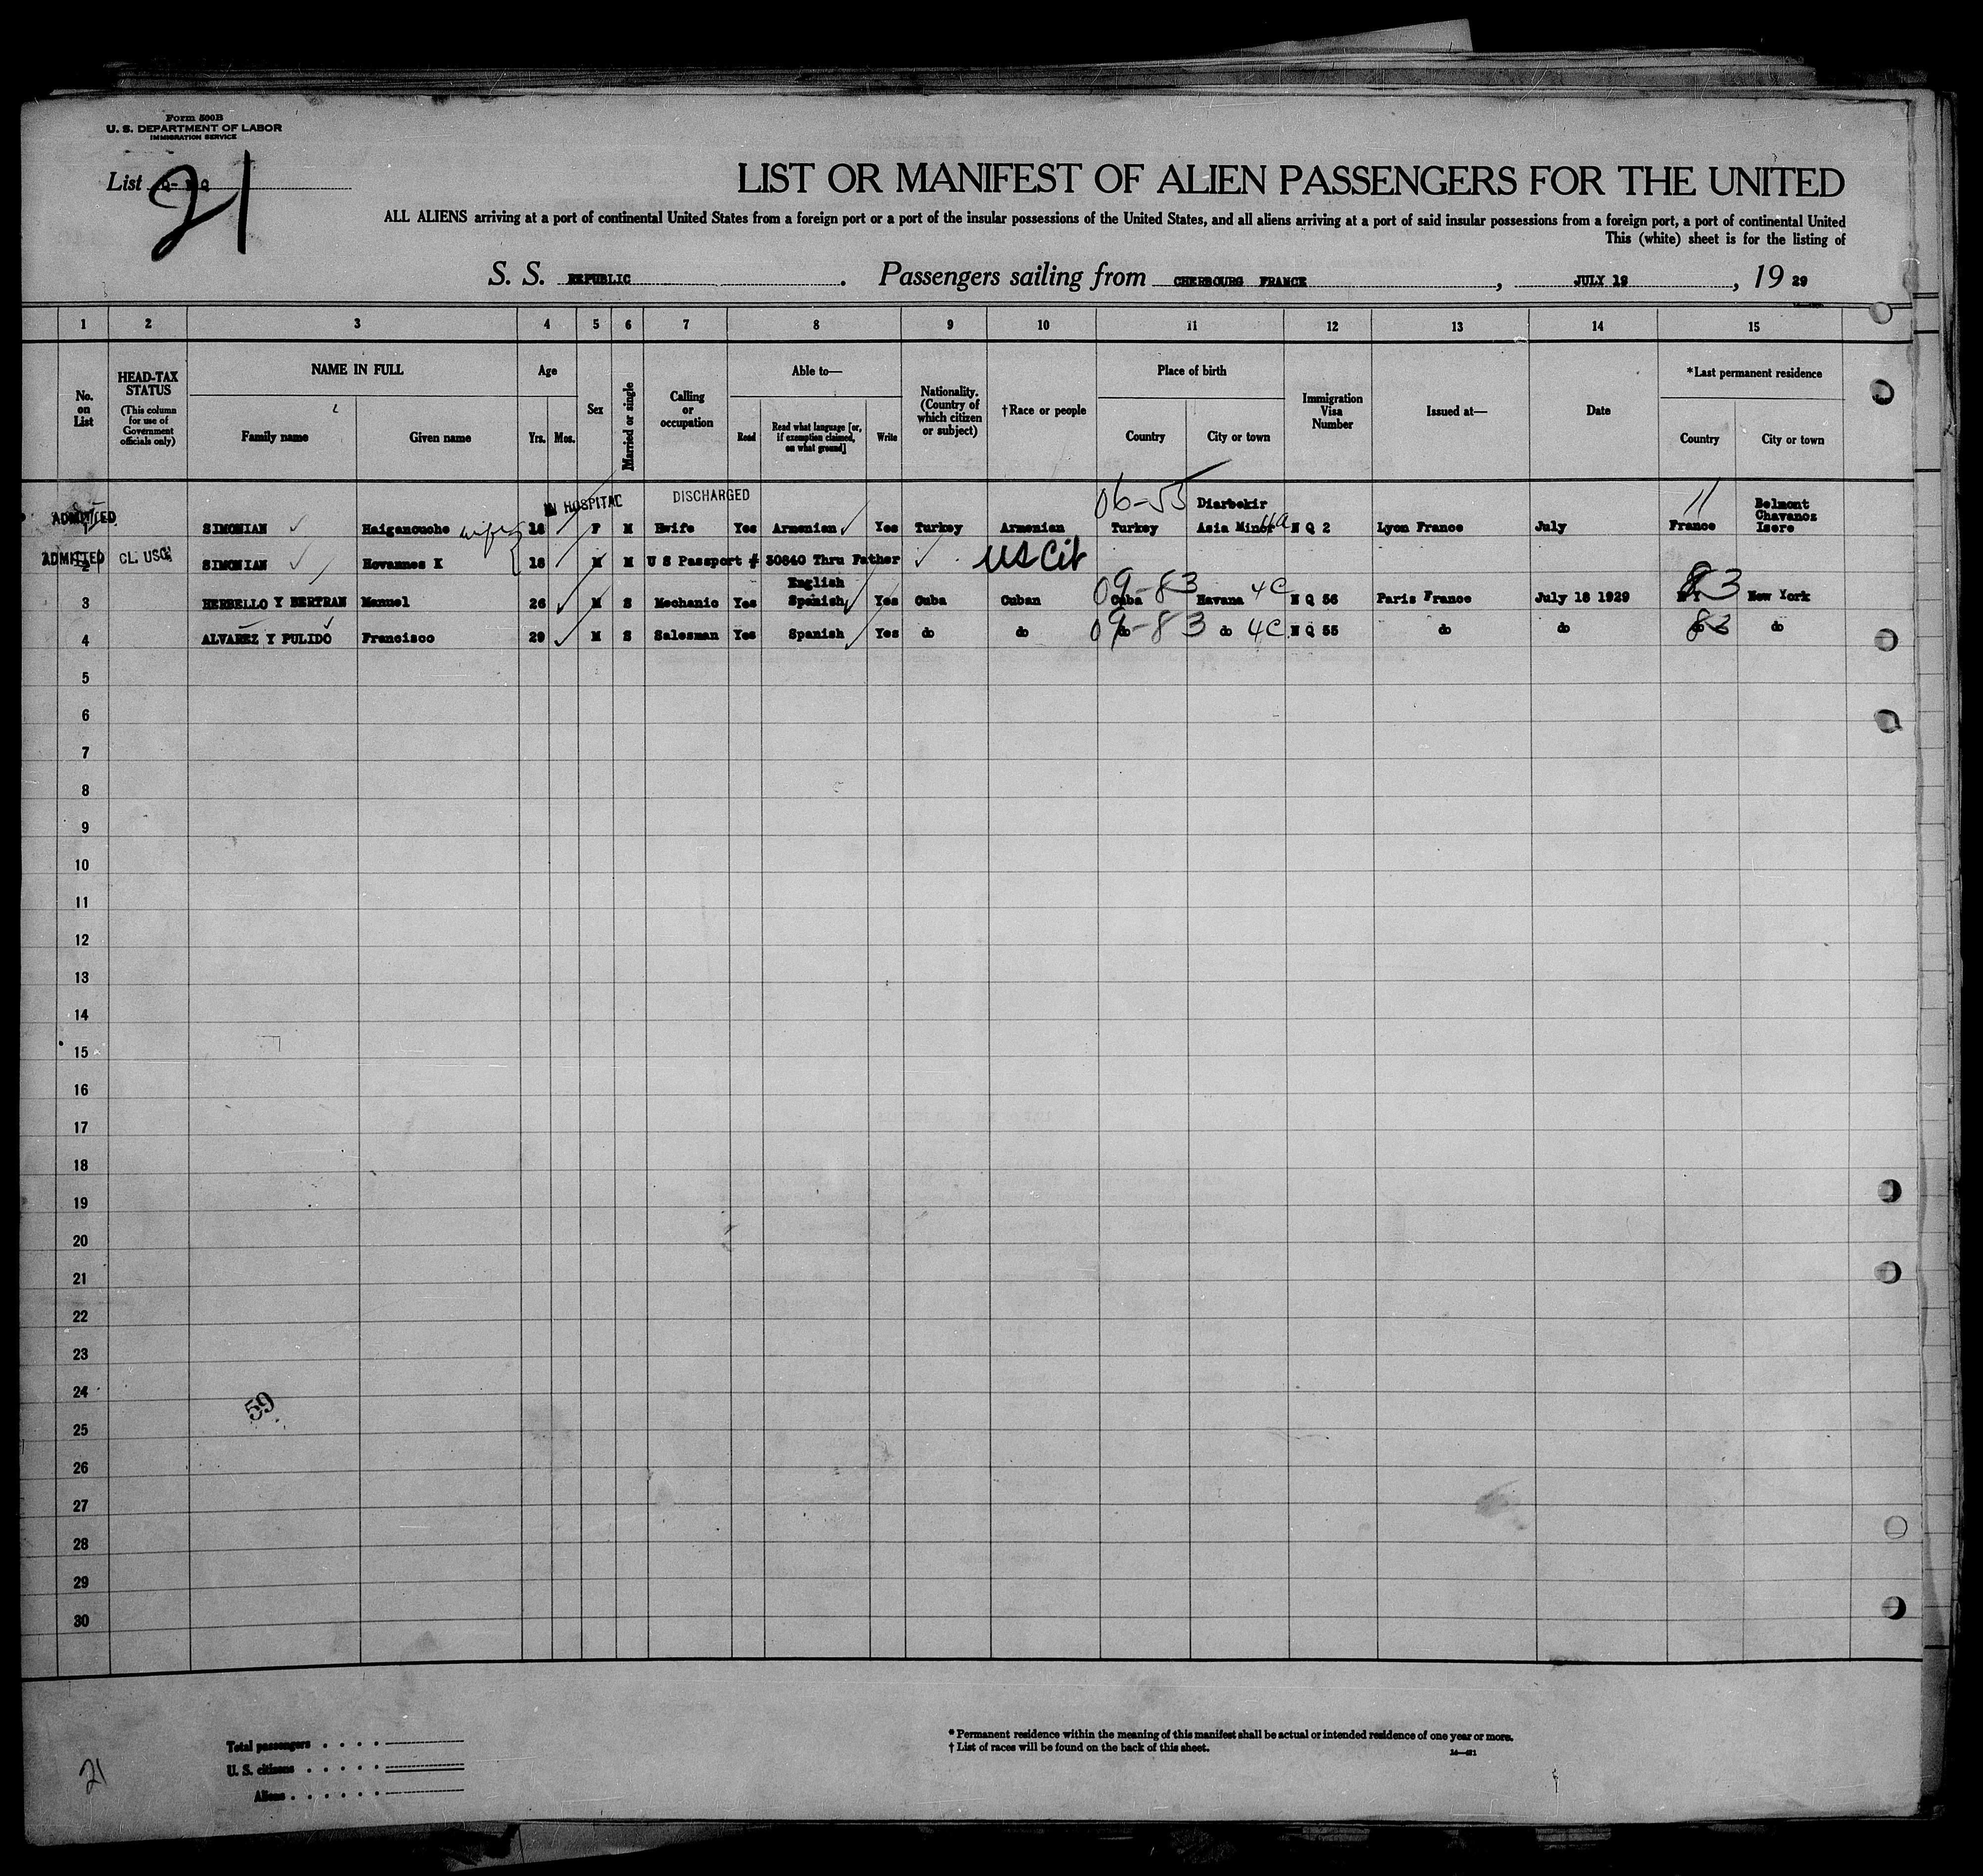 Form 500B
U. S. DEPARTMENT OF LABOR
IMMIGRATION SERVICE
List
21
LIST OR MANIFEST OF ALIEN PASSENGERS FOR THE UNITED
ALL ALIENS arriving at a port of continental United States from a foreign port or a port of the insular possessions of the United States, and all aliens arriving at a port of said insular possessions from a foreign port, a port of continental United
This (white) sheet is for the listing of
S. S. REPUBLIC. Passengers sailing from CHERBOURG FRANCE, JULY 19, 19 29
1 2 3 4 5 6 7 8 9 10 11 12 13 14 15
No. on List
HEAD-TAX STATUS (This column for use of Government officials only)
NAME IN FULL
Family name Given name
Age
Yrs. Mos.
Sex
Married or single
Calling or occupation
Able to—
Read Read what language [or, if exemption claimed, on what ground] Write
Nationality. (Country of which citizen or subject)
†Race or people
Place of birth
Country City or town
Immigration Visa Number
Issued at—
Date
*Last permanent residence
Country City or town
IN HOSPITAL DISCHARGED 06-55 Diarbekir 11 Belmont Chavanoz
ADMITTED 1 SIMONIAN Haiganouche wife 18 F M Hwife Yes Armenian Yes Turkey Armenian Turkey Asia Minor N Q 2 Lyon France July France Isere
ADMITTED 2 CL. USC SIMONIAN Hovannes K 18 M M U S Passport # 30840 Thru Father US Cit
English
3 HERBELLO Y BERTRAN Manuel 26 M S Mechanic Yes Spanish Yes Cuba Cuban 09-83 Cuba Havana 4C N Q 56 Paris France July 18 1929 83 New York
4 ALVAREZ Y PULIDO Francisco 29 M S Salesman Yes Spanish Yes do do 09-83 do do 4C N Q 55 do do 83 do do
5
6
7
8
9
10
11
12
13
14
15
16
17
18
19
20
21
22
23
24
59
25
26
27
28
29
30
Total passengers
U. S. citizens
Aliens
* Permanent residence within the meaning of this manifest shall be actual or intended residence of one year or more.
† List of races will be found on the back of this sheet.
21